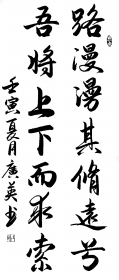 路漫漫其脩遠兮
吾將上下而求索
壬寅夏月廣英书